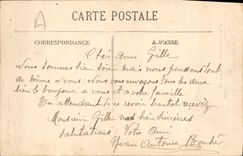 CARTE POSTALE
CORRESPONDANCE
ADRESSE
Cher ami Gille
Nous sommes bien loin mais nous pensons tout
de même a vous Nous vous envoyons tous les deux
bien le bonjour a vous et a votre famille
En attendant
Monsieur Gille nos bien sincères
salutations Votre ami
Antoine